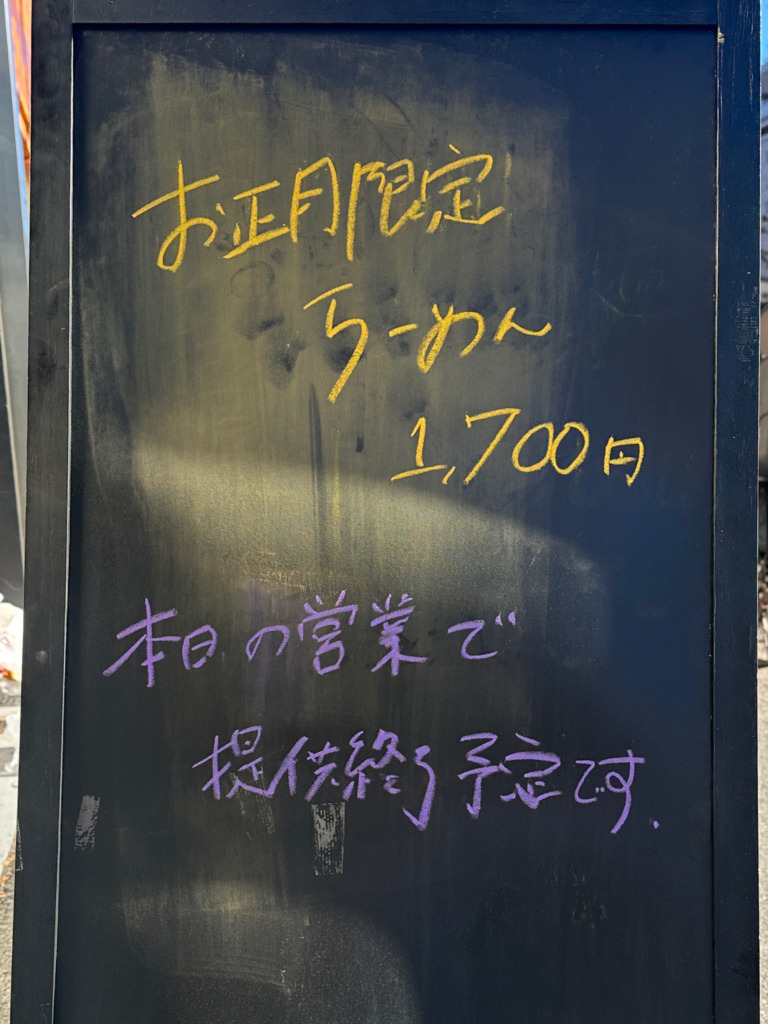 お正月限定
らーめん
1,700円
本日の営業で
提供終了予定です.